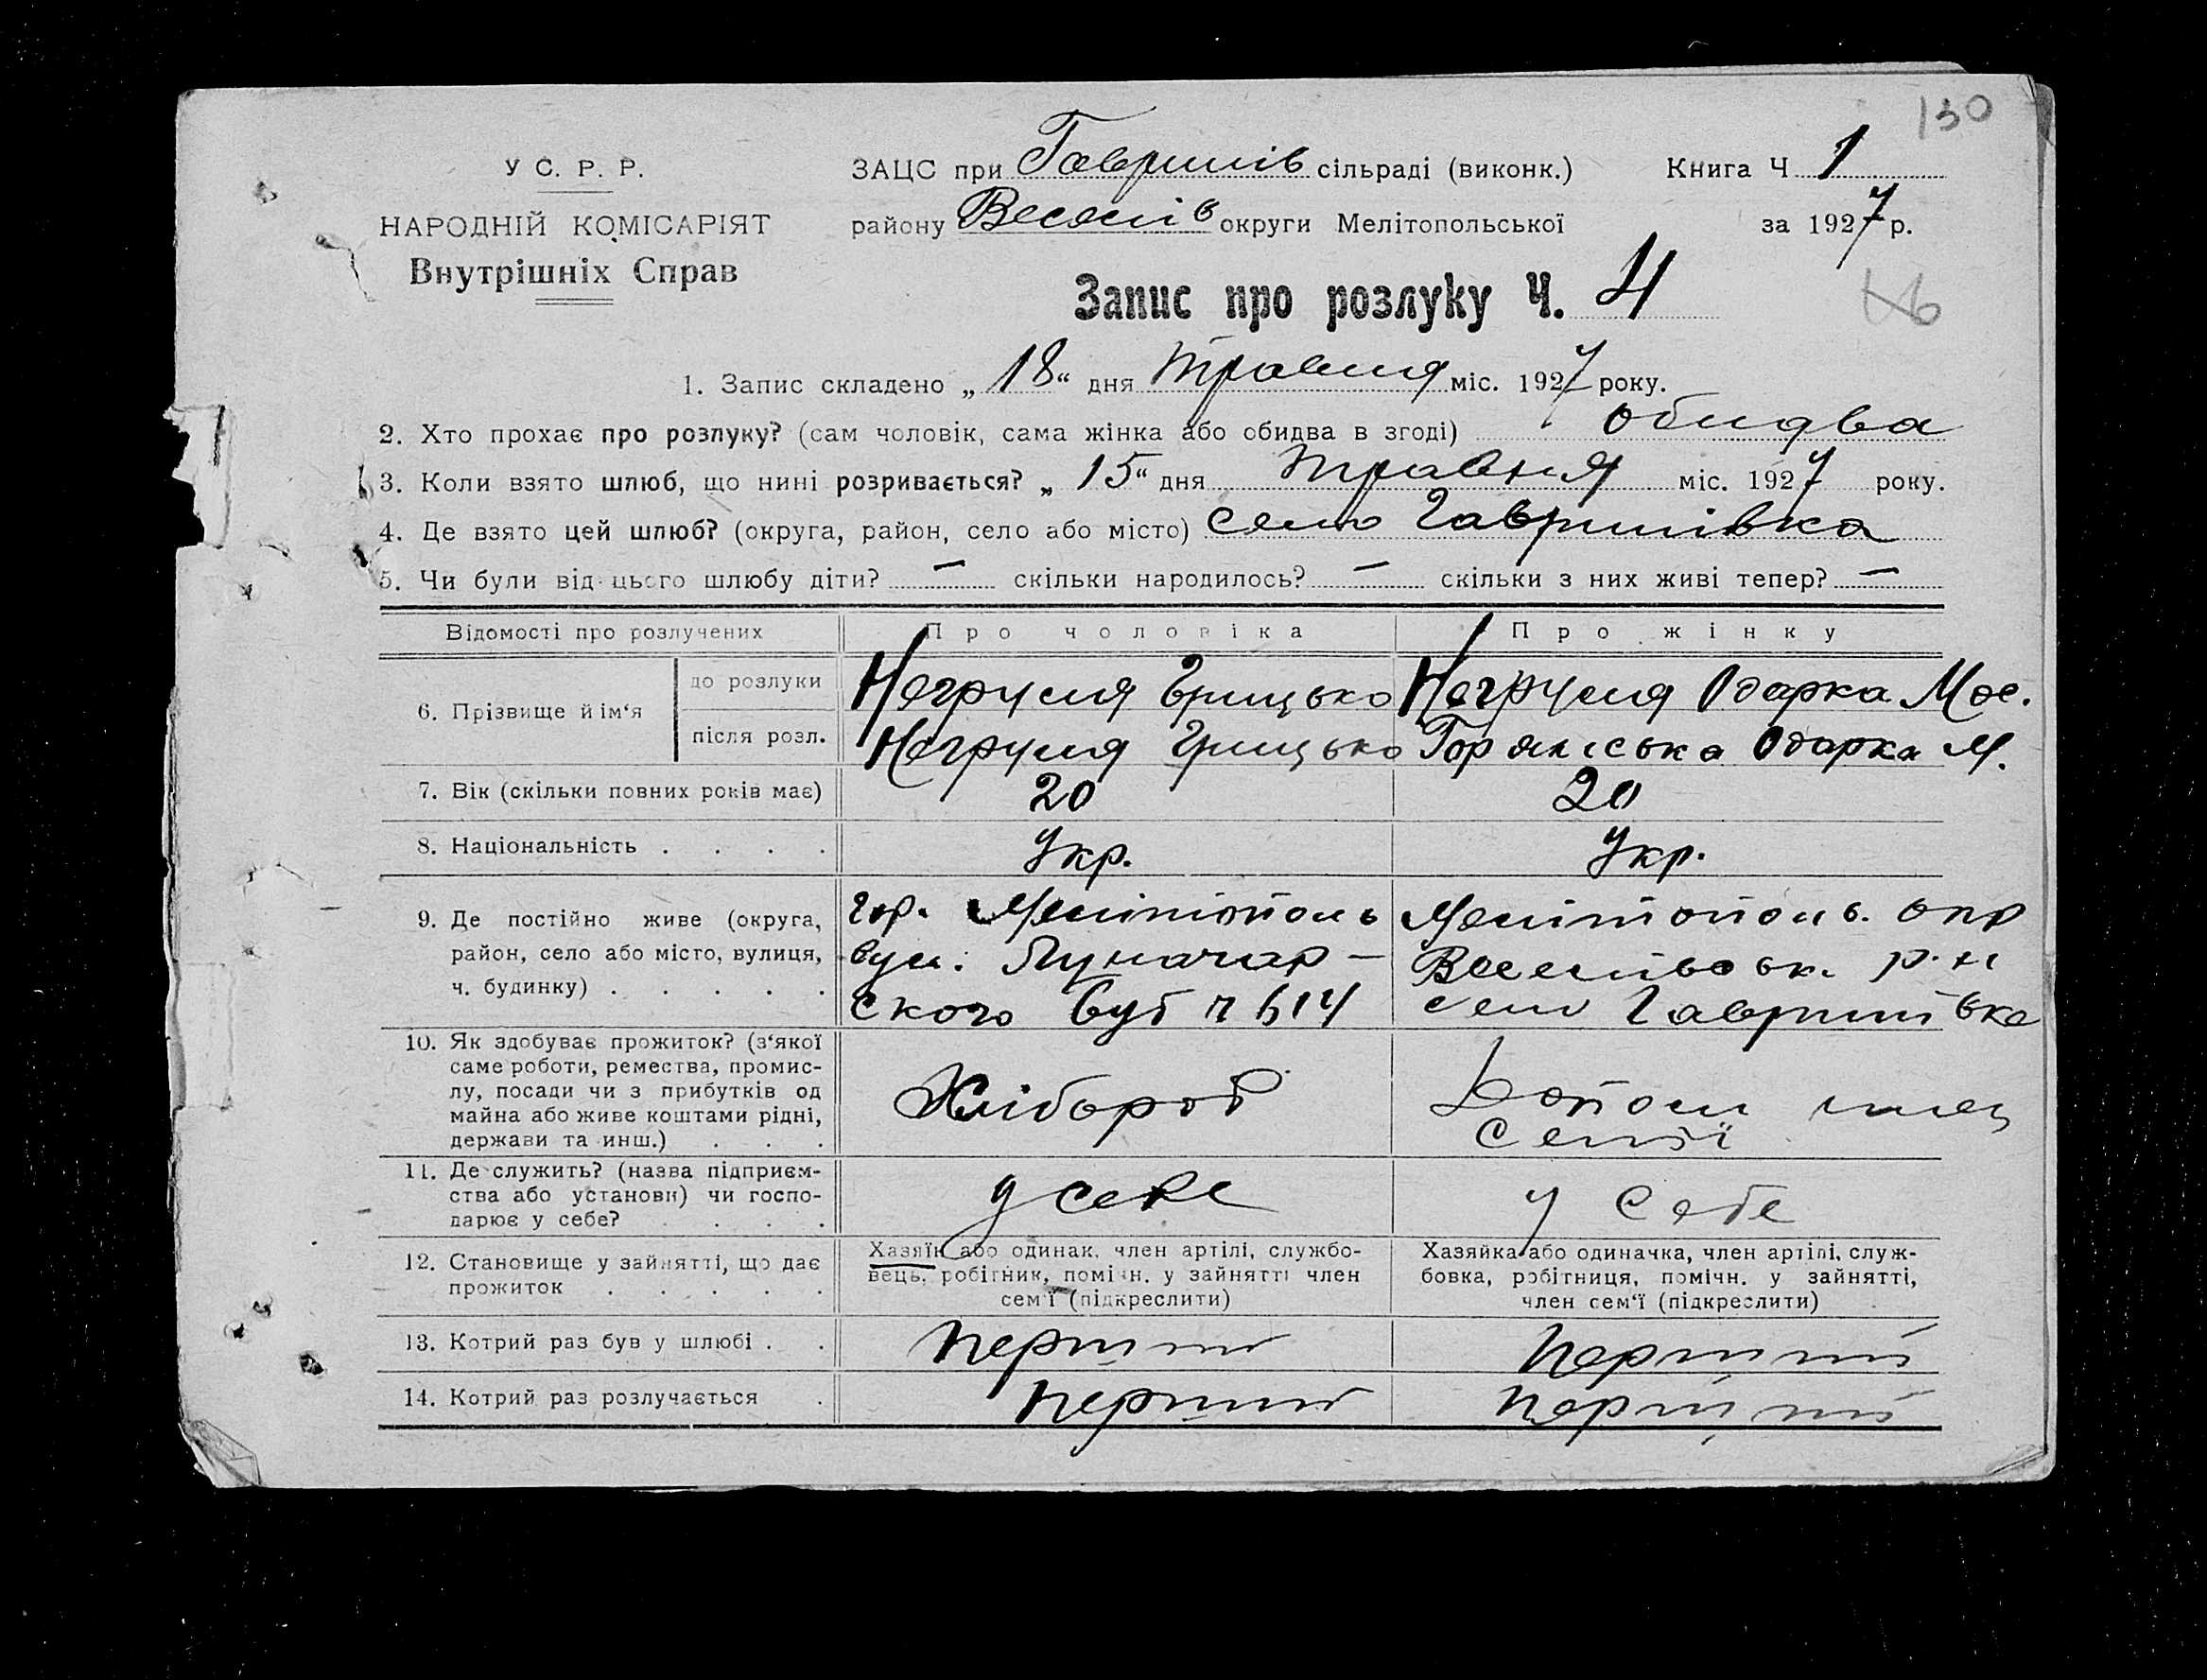 130
У С. Р. Р.
НАРОДНІЙ КОМІСАРІЯТ
Внутрішніх Справ
ЗАЦС при Гаврилів сільраді (виконк.) Книга Ч 1
району Веселів округи Мелітопольської за 1927 р.
Запис про розлуку Ч. 4
1. Запис складено „18“ дня травня міс. 1927 року.
2. Хто прохає про розлуку? (сам чоловік, сама жінка або обидва в згоді) обидва
3. Коли взято шлюб, що нині розривається? „15“ дня травня міс. 1927 року.
4. Де взято цей шлюб? (округа, район, село або місто) село Гаврилівка
5. Чи були від цього шлюбу діти? — скільки народилось? — скільки з них живі тепер? —
Відомості про розлучених Про чоловіка Про жінку
6. Прізвище й ім‘я
до розлуки Негруля Грицько Негруля Одарка
після розл. Негруля Грицько Одарка М.
7. Вік (скільки повних років має) 20 20
8. Національність . . . . Укр. Укр.
9. Де постійно живе (округа,
район, село або місто, вулиця,
ч. будинку) . . . . .
гор. Мелітополь
вул. Луначар-
ского буд
Мелітополь. окр
р-н
село Гаврилівка
10. Як здобуває прожиток? (з‘якої
саме роботи, ремества, промис-
лу, посади чи з прибутків од
майна або живе коштами рідні,
держави та инш.) . . .
Хлібороб
член
семї
11. Де служить? (назва підприєм-
ства або установи) чи госпо-
дарює у себе? . . . .
у себе
у себе
12. Становище у зайнятті, що дає
прожиток . . . . .
Хазяїн або одинак, член артілі, службо-
вець, робітник, помічн. у зайнятті член
сем‘ї (підкреслити)
Хазяйка або одиначка, член артілі, служ-
бовка, робітниця, помічн. у зайнятті,
член сем‘ї (підкреслити)
13. Котрий раз був у шлюбі . . перший перший
14. Котрий раз розлучається . перший перший